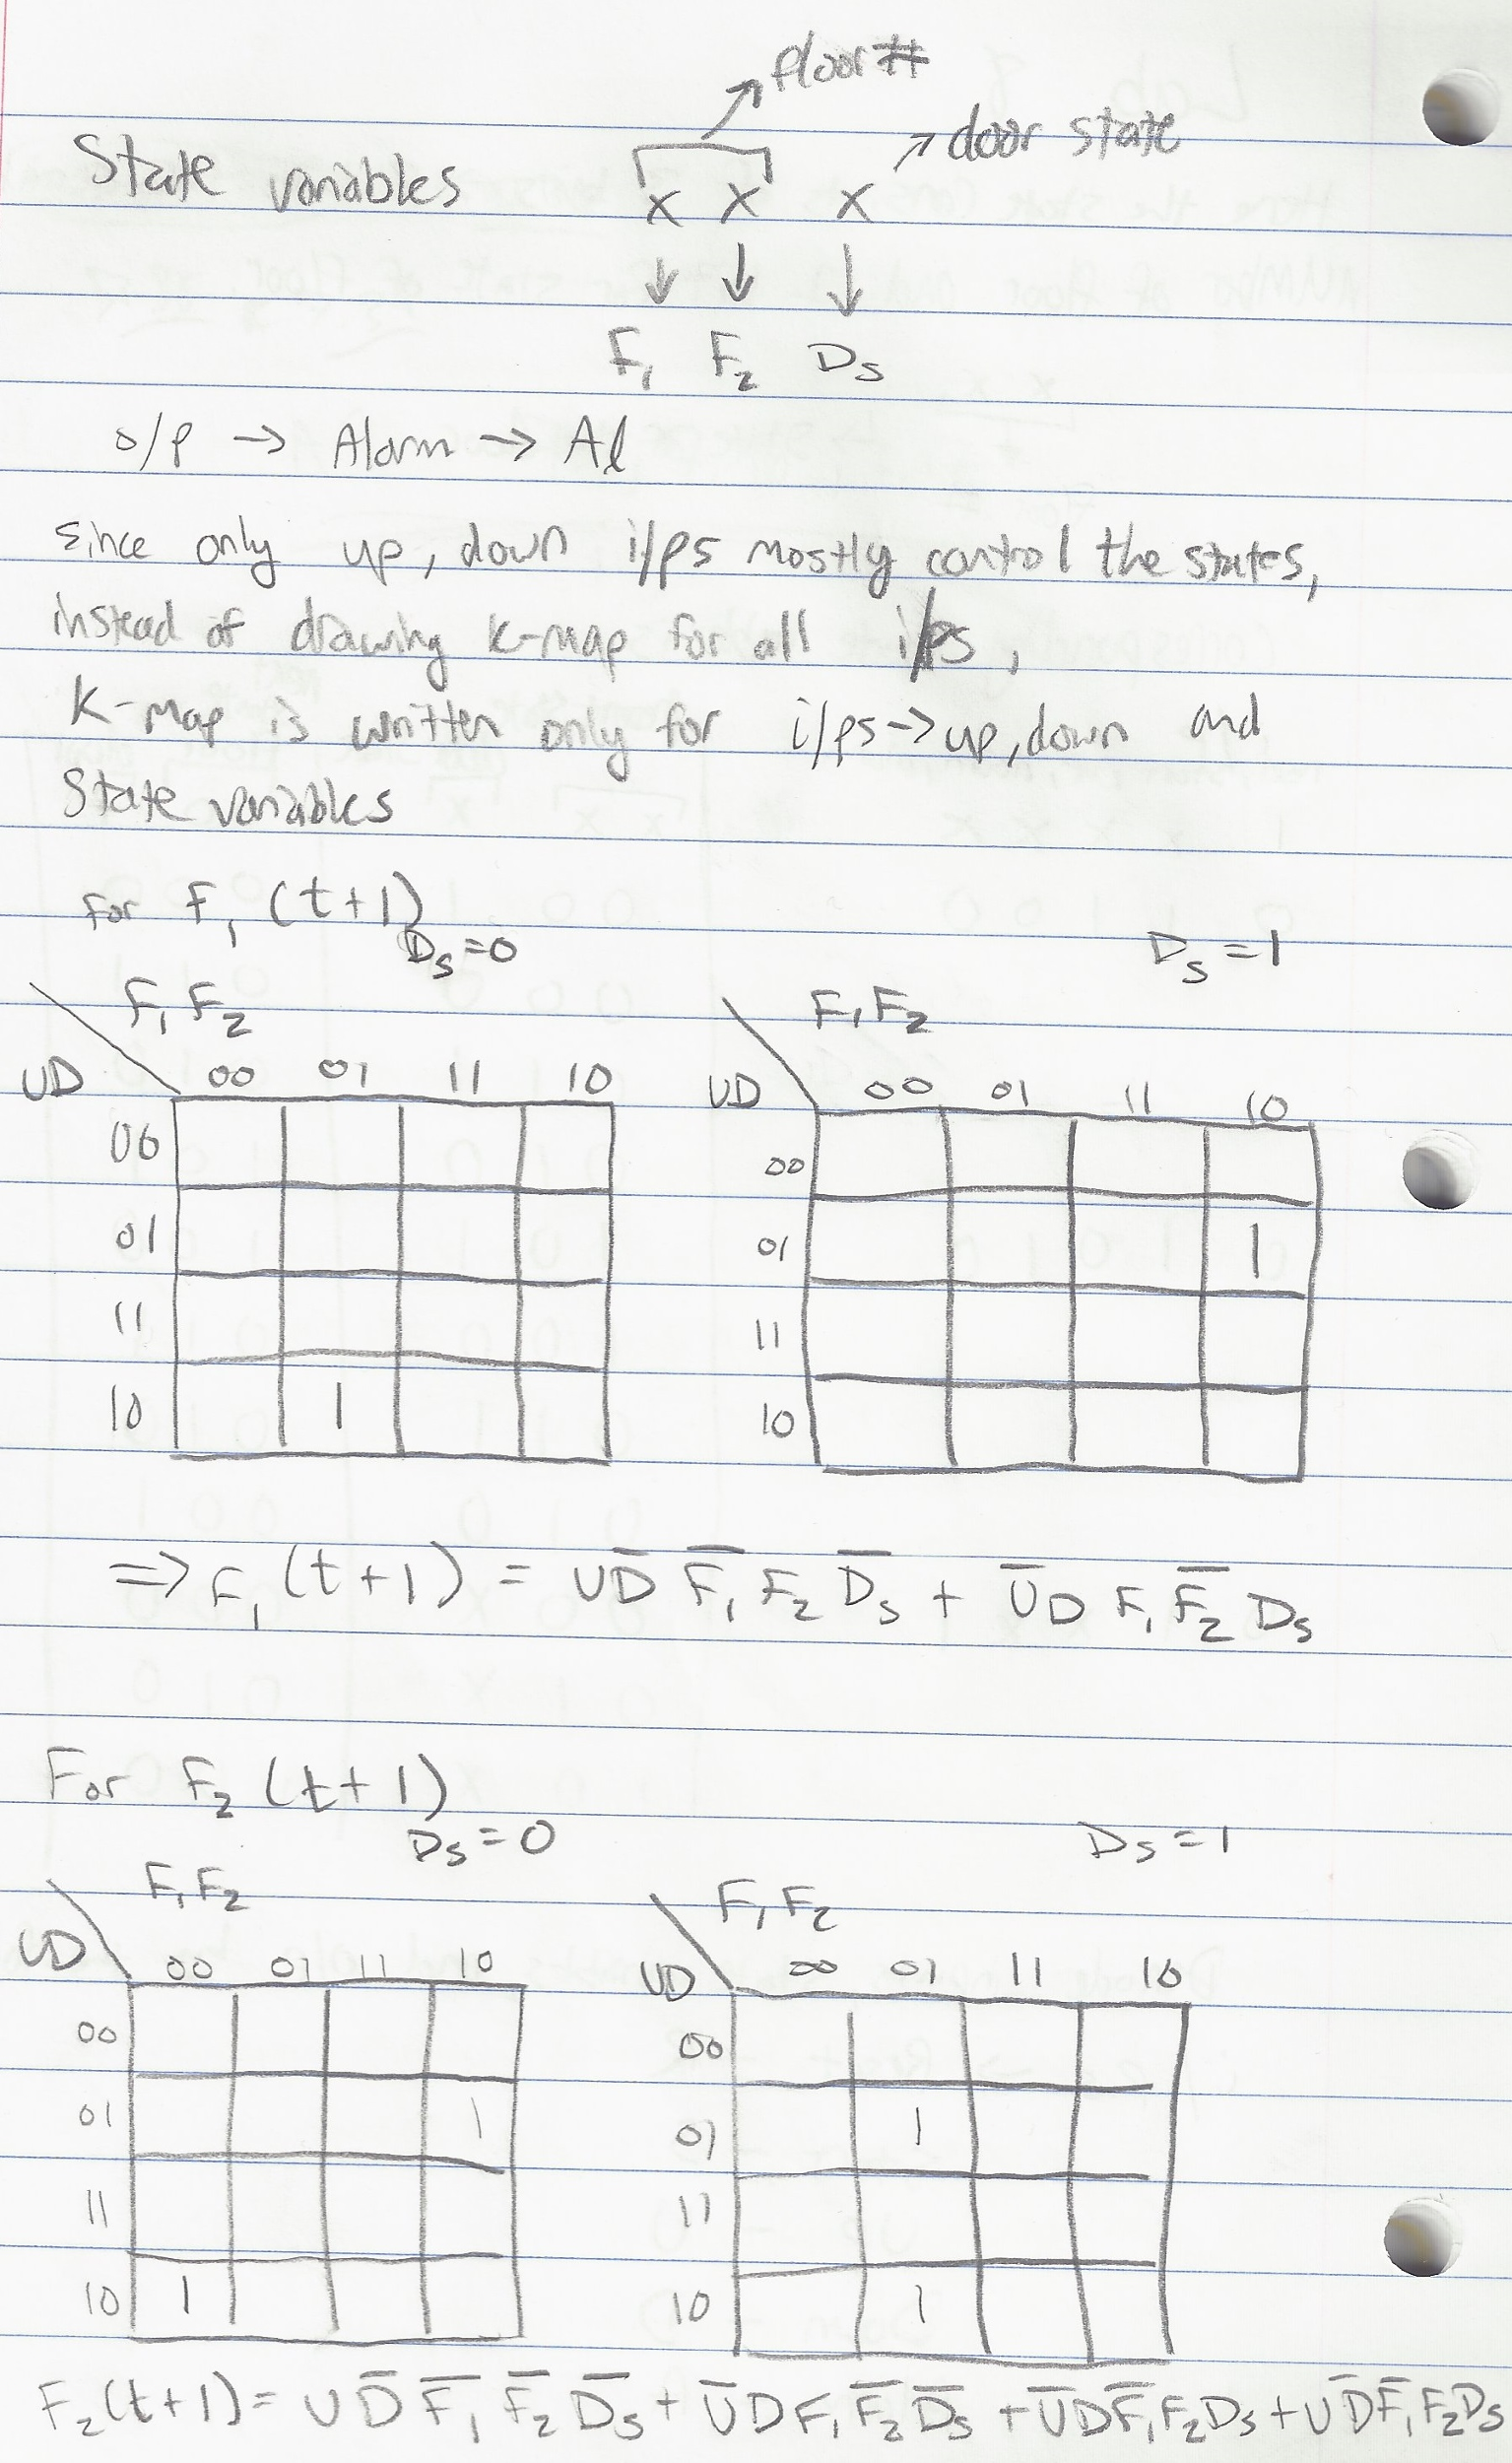 floor #
door state
State variables x x x
↓ ↓ ↓
F₁ F₂ Ds
o/p → Alarm → Al
Since only up, down i/ps mostly control the states,
instead of drawing k-map for all i/ps,
K-map is written only for i/ps → up, down and
State variables
For F₁ (t+1)
Ds=0 Ds=1
F₁F₂ F₁F₂
UD 00 01 11 10 UD 00 01 11 10
00 00
01 01 1
11 11
10 1 10
⇒ F₁ (t+1) = UD̅ F̅₁ F₂ D̅s + U̅D F₁ F̅₂ Ds
For F₂ (t+1)
Ds=0 Ds=1
F₁F₂ F₁F₂
UD 00 01 11 10 UD 00 01 11 10
00 00
01 1 01 1
11 11
10 1 10 1
F₂(t+1)= UD̅ F̅₁ F̅₂ D̅s + U̅DF₁ F̅₂ D̅s + U̅DF̅₁F₂Ds + UD̅F̅₁F₂Ds